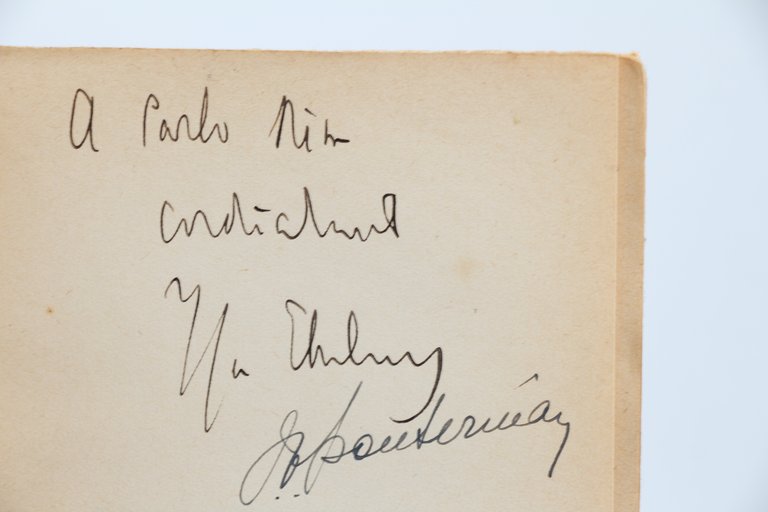 A Carlo Rim
cordialement
Ilya Ehrenbourg